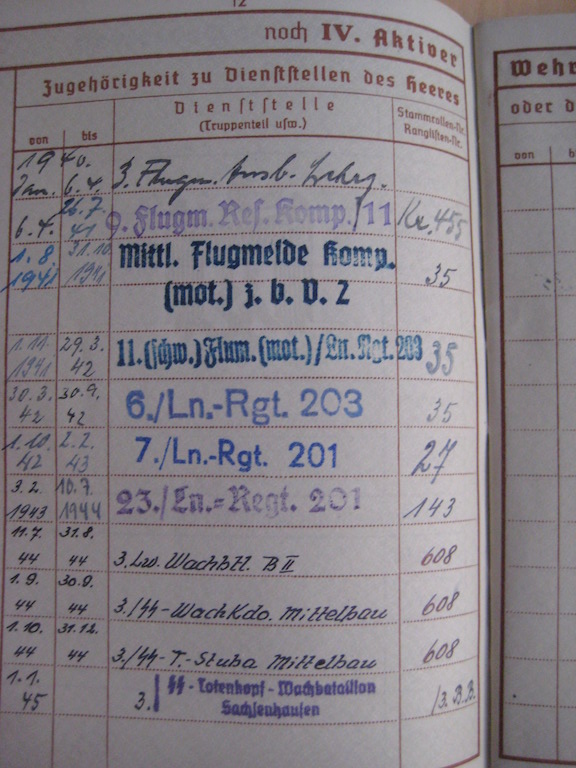 12
noch IV. Aktiver
Zugehörigkeit zu Dienststellen des Heeres
von bis Dienststelle (Truppenteil usw.) Stammrollen-Nr. Ranglisten-Nr.
1940.
Jan. 6.4. 3. Flugm. Ausb.
6.4. 26.7. 41 9. Flugm. Res. Komp./11 Kr. 455
1.8. 1941 31.10. 1941 Mittl. Flugmelde Komp.
(mot.) z. b. V. 2 35
1.11. 1941 29.3. 42 11.(schw.) Flum.(mot.)/Ln. Rgt. 203 35
30.3. 42 30.9. 42 6./Ln.-Rgt. 203 35
1.10. 42 2.2. 43 7./Ln.-Rgt. 201 27
3.2. 1943 10.7. 1944 23./Ln.=Regt. 201 143
11.7. 44 31.8. 44 3. Lw. Wachbtl. B II 608
1.9. 44 30.9. 44 3./SS-WachKdo. Mittelbau 608
1.10. 44 31.12. 44 3./SS-T.-Stuba Mittelbau 608
1.1. 45 3. SS-Totenkopf-Wachbataillon
Sachsenhausen /3. B.B.
Wehr
oder d
von b